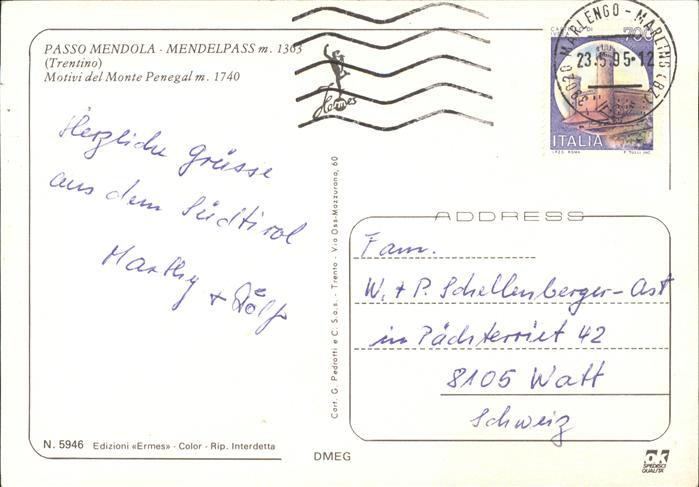 PASSO MENDOLA - MENDELPASS m. 1363
(Trentino)
Motivi del Monte Penegal m. 1740
Hermes
700
39020 MARLENGO - MARLING (BZ)
23.5.95-12
ITALIA
I.P.Z.S. ROMA
F. TULLI INC.
Herzliche Grüsse
aus dem Südtirol
Marthy + Rölf
Cart. G. Pedrotti e C. S.a.s. - Trento - Via Oss-Mazzurana, 60
ADDRESS
Fam.
W. + P. Schellenberger-Ast
in Pächterriet 42
8105 Watt
Schweiz
N. 5946 Edizioni «Ermes» - Color - Rip. Interdetta
DMEG
ok
SPEDISCI
QUALITÀ